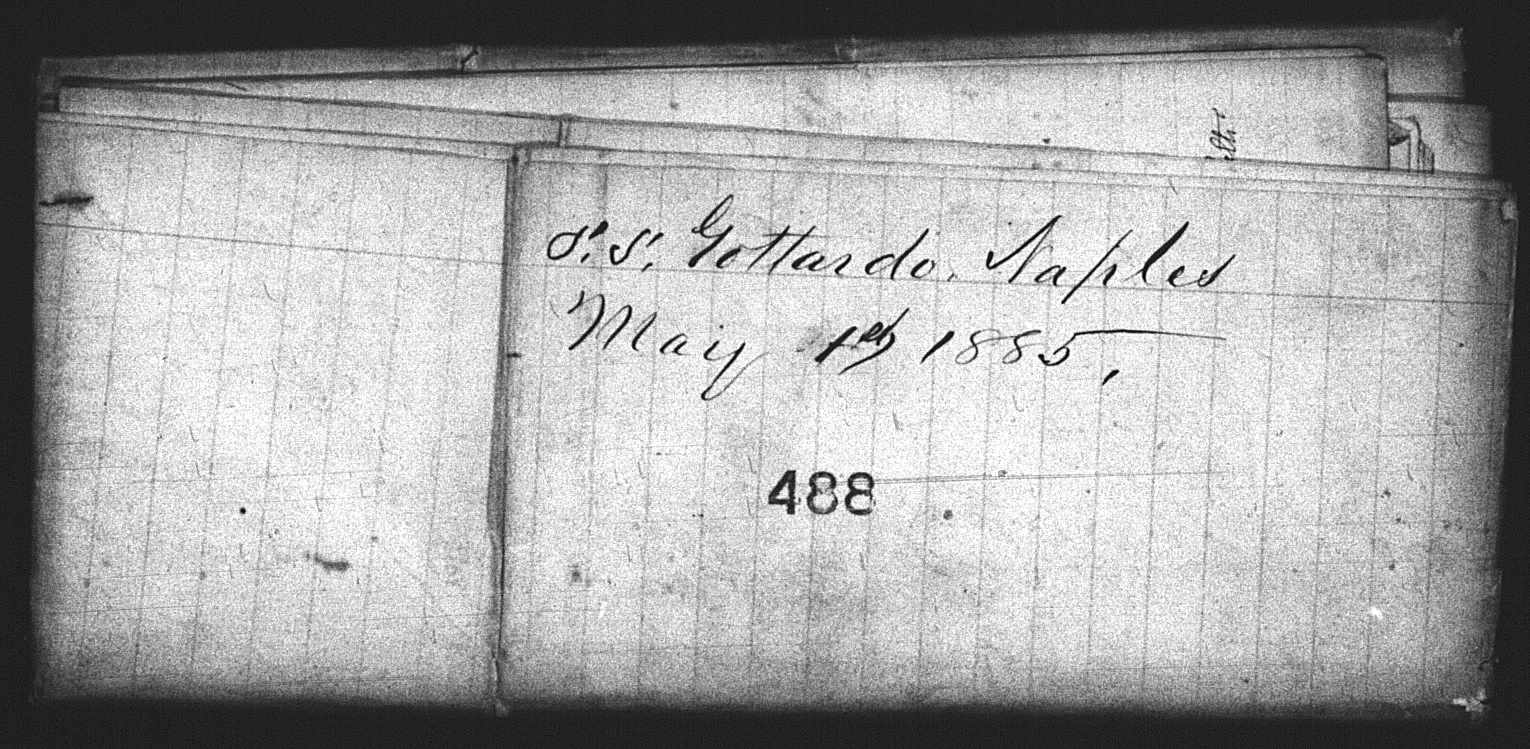 S.S. Gottardo. Naples
May 1st 1885,
488